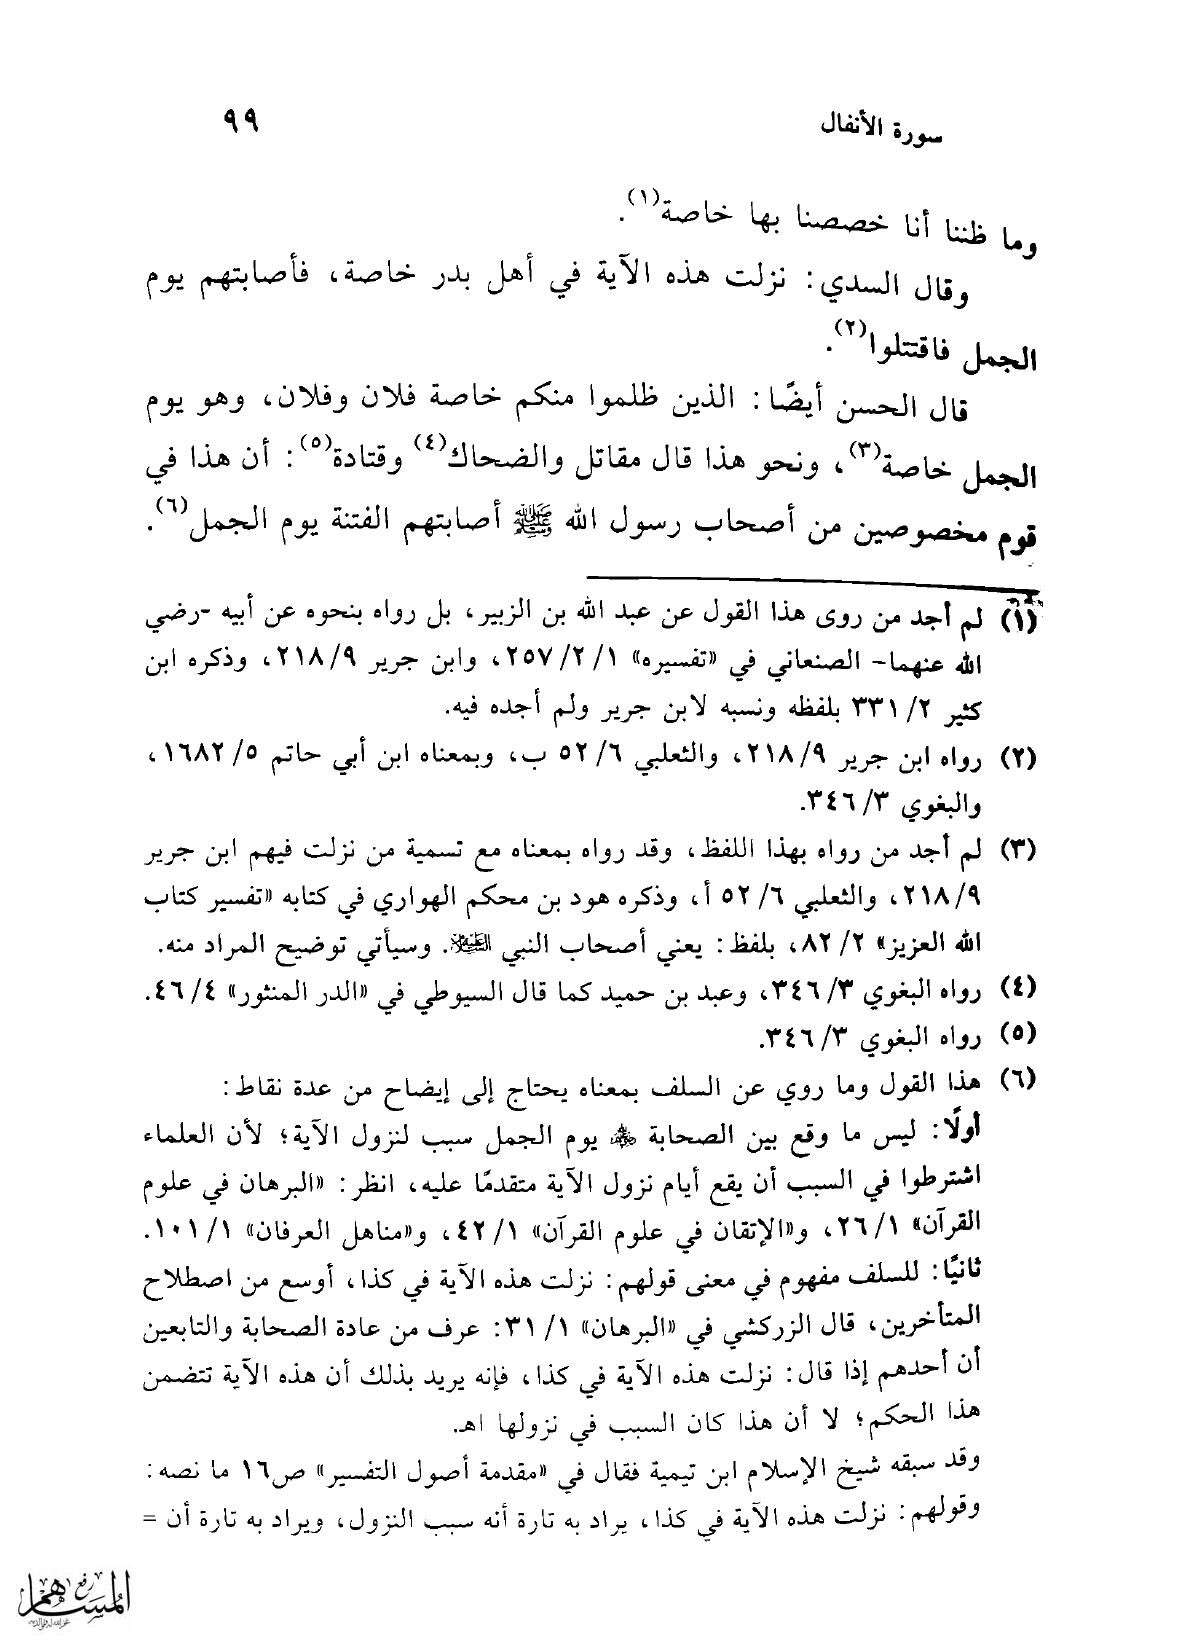 سورة الأنفال
٩٩
وما ظننا أنا خصصنا بها خاصة(١).
وقال السدي: نزلت هذه الآية في أهل بدر خاصة، فأصابتهم يوم
الجمل فاقتتلوا(٢).
قال الحسن أيضًا: الذين ظلموا منكم خاصة فلان وفلان، وهو يوم
الجمل خاصة(٣)، ونحو هذا قال مقاتل والضحاك(٤) وقتادة(٥): أن هذا في
قوم مخصوصين من أصحاب رسول الله ﷺ أصابتهم الفتنة يوم الجمل(٦).
(١) لم أجد من روى هذا القول عن عبد الله بن الزبير، بل رواه بنحوه عن أبيه -رضي
الله عنهما- الصنعاني في «تفسيره» ١/ ٢/ ٢٥٧، وابن جرير ٩/ ٢١٨، وذكره ابن
كثير ٢/ ٣٣١ بلفظه ونسبه لابن جرير ولم أجده فيه.
(٢) رواه ابن جرير ٩/ ٢١٨، والثعلبي ٦/ ٥٢ ب، وبمعناه ابن أبي حاتم ٥/ ١٦٨٢،
والبغوي ٣/ ٣٤٦.
(٣) لم أجد من رواه بهذا اللفظ، وقد رواه بمعناه مع تسمية من نزلت فيهم ابن جرير
٩/ ٢١٨، والثعلبي ٦/ ٥٢ أ، وذكره هود بن محكم الهواري في كتابه «تفسير كتاب
الله العزيز» ٢/ ٨٢، بلفظ: يعني أصحاب النبي عليه السلام. وسيأتي توضيح المراد منه.
(٤) رواه البغوي ٣/ ٣٤٦، وعبد بن حميد كما قال السيوطي في «الدر المنثور» ٤/ ٤٦.
(٥) رواه البغوي ٣/ ٣٤٦.
(٦) هذا القول وما روي عن السلف بمعناه يحتاج إلى إيضاح من عدة نقاط:
أولًا: ليس ما وقع بين الصحابة رضي الله عنهم يوم الجمل سبب لنزول الآية؛ لأن العلماء
اشترطوا في السبب أن يقع أيام نزول الآية متقدمًا عليه، انظر: «البرهان في علوم
القرآن» ١/ ٢٦، و«الإتقان في علوم القرآن» ١/ ٤٢، و«مناهل العرفان» ١/ ١٠١.
ثانيًا: للسلف مفهوم في معنى قولهم: نزلت هذه الآية في كذا، أوسع من اصطلاح
المتأخرين، قال الزركشي في «البرهان» ١/ ٣١: عرف من عادة الصحابة والتابعين
أن أحدهم إذا قال: نزلت هذه الآية في كذا، فإنه يريد بذلك أن هذه الآية تتضمن
هذا الحكم؛ لا أن هذا كان السبب في نزولها اهـ.
وقد سبقه شيخ الإسلام ابن تيمية فقال في «مقدمة أصول التفسير» ص١٦ ما نصه:
وقولهم: نزلت هذه الآية في كذا، يراد به تارة أنه سبب النزول، ويراد به تارة أن =